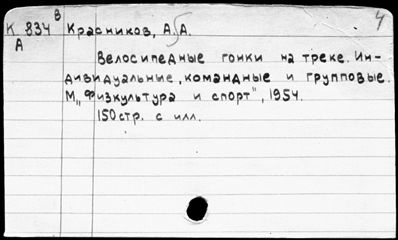 В 4
К 834 Красников, А.А.
А
Велосипедные гонки на треке. Ин-
дивидуальные, командные и групповые.
М., „Физкультура и спорт", 1954.
150 стр. с илл.